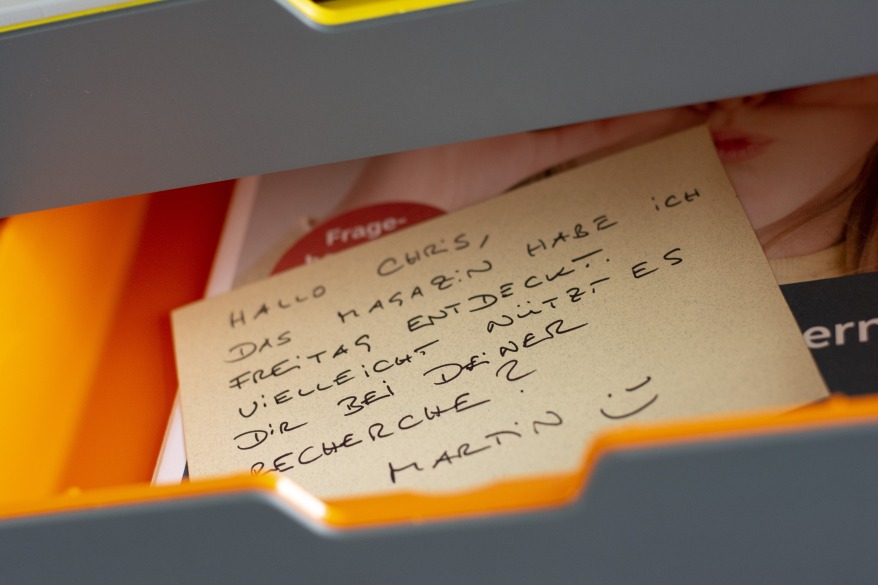 Frage-
HALLO CHRIS,
DAS MAGAZIN HABE ICH
FREITAG ENTDECKT.
VIELLEICHT NÜTZT ES
DIR BEI DEINER
RECHERCHE?
MARTIN :)
ern